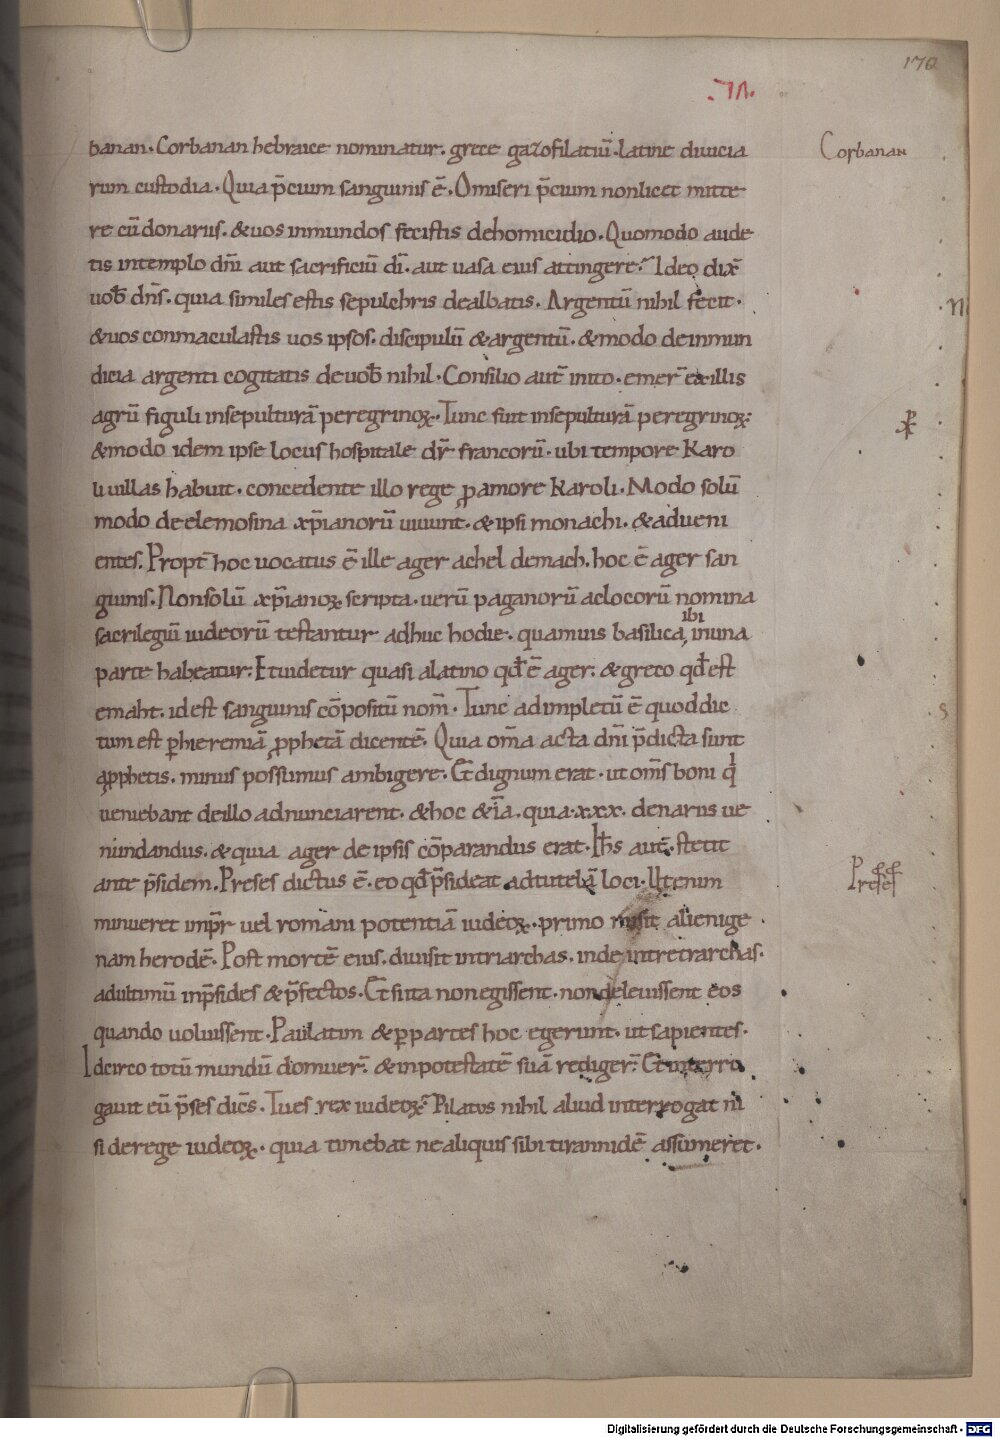 170
banan. Corbanan hebraice nominatur. grece gazofilatiū. latine diuicia
Corbanan
rum custodia. Quia p̄cium sanguinis ē. O miseri p̄cium non licet mitte
re cū donariis. & uos inmundos fecistis de homicidio. Quomodo aude
tis in templo dn̄i aut sacrificiū dī. aut uasa eius attingere? Ideo dix̄
uob̄ dn̄s. quia similes estis sepulchris dealbatis. Argentū nihil fecit.
& uos conmaculastis uos ipsos. discipulū & argentū. & modo de inmun
dicia argenti cogitatis de uob̄ nihil. Consilio aut̄ inito. emer̄ ex illis
agrū figuli in sepulturā peregrinoꝝ. Tunc fuit in sepulturā peregrinoꝝ:
& modo idem ipse locus hospitale dr̄ francorū. ubi tempore Karo
li uillas habuit. concedente illo rege ꝓ amore Karoli. Modo solū
modo de elemosina xp̄ianorū uiuunt. & ipsi monachi. & adueni
entes. Propt̄ hoc uocatus ē ille ager achel demach. hoc ē ager san
guinis. Non solū xp̄ianoꝝ scripta. uerū paganorū ac locorū nomina
sacrilegiū iudeorū testantur adhuc hodie. quamuis basilica ibi in una
parte habeatur. Et uidetur quasi a latino qd̄ ē ager. & greco qd̄ est
emaht. id est sanguinis cōpositū nom̄. Tunc adimpletū ē quod dic
tum est ꝑ hieremiā ꝓphetā dicentē. Quia om̄a acta dn̄i p̄dicta sunt
a ꝓphetis. minus possumus ambigere. Et dignum erat. ut om̄s boni q
ueniebant de illo adnunciarent. & hoc & īa. quia .xxx. denariis ue
nundandus. & quia ager de ipsis cōparandus erat. Ih̄s aut̄ stetit
ante p̄sidem. Preses dictus ē. eo qd̄ p̄sideat ad tutelā loci. Ut enim
Preses
minueret imp̄r uel romani potentiā iudeoꝝ. primo misit alienige
nam herodē. Post mortē eius. diuisit in triarchas. inde in tretrarchas.
ad ultimū in p̄sides & p̄fectos. Et si ita non egissent. non deleuissent eos
quando uoluissent. Paulatim & ꝑ partes hoc egerunt. ut sapientes.
Idcirco totū mundū domuer̄. & in potestatē suā rediger̄. Et interro
gauit eū p̄ses dicēs. Tu es rex iudeoꝝ? Pilatus nihil aliud interrogat ni
si de rege iudeoꝝ. quia timebat ne aliquis sibi tirannidē assumeret.
Digitalisierung gefördert durch die Deutsche Forschungsgemeinschaft - DFG